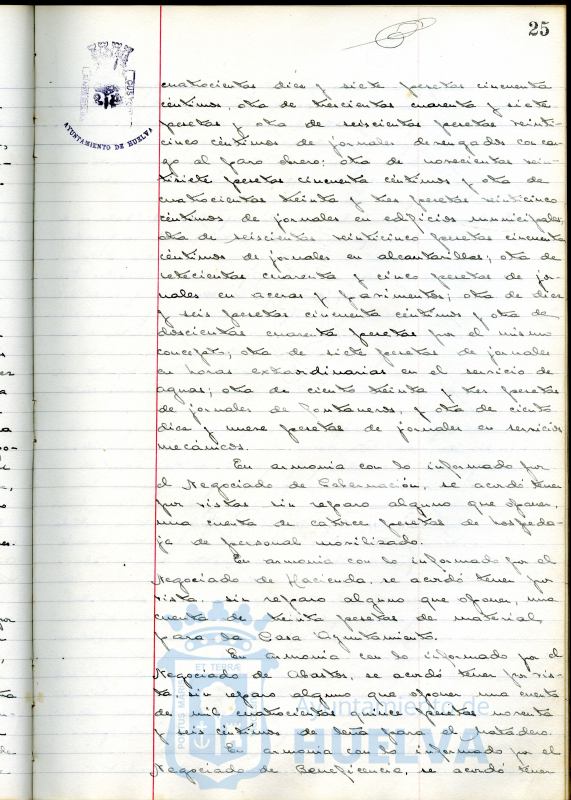 25
AYUNTAMIENTO DE HUELVA
cuatrocientas diez y siete pesetas cincuenta
céntimos, otra de trescientas cuarenta y siete
pesetas y otra de seiscientas pesetas veinti-
cinco céntimos de jornales devengados con car-
go al paro obrero; otra de novecientas vein-
tisiete pesetas cincuenta céntimos y otra de
cuatrocientas treinta y tres pesetas veinticinco
céntimos de jornales en edificios municipales;
otra de seiscientas veinticinco pesetas cincuenta
céntimos de jornales en alcantarillas; otra de
setecientas cuarenta y cinco pesetas de jor-
nales en aceras y pavimentos; otra de diez
y seis pesetas cincuenta céntimos y otra de
doscientas cuarenta pesetas por el mismo
concepto; otra de siete pesetas de jornales
en horas extraordinarias en el servicio de
aguas; otra de ciento treinta y tres pesetas
de jornales de fontaneros, y otra de ciento
diez y nueve pesetas de jornales en servicios
mecánicos.
En armonia con lo informado por
el Negociado de Gobernación, se acordó tener
por vistas sin reparo alguno que oponer,
una cuenta de catorce pesetas de hospeda-
je de personal movilizado.
En armonia con lo informado por el
Negociado de Hacienda, se acordó tener por
vista, sin reparo alguno que oponer, una
cuenta de treinta pesetas de material
para la Casa Ayuntamiento.
En armonia con lo informado por el
Negociado de Abastos, se acordó tener por vis-
ta, sin reparo alguno que oponer una cuenta
de mil cuatrocientas quince pesetas noventa
y seis céntimos de leña para el Matadero.
En armonia con lo informado por el
Negociado de Beneficencia, se acordó tener
ET TERRÆ
PORTUS MARIS
Ayuntamiento de
HUELVA